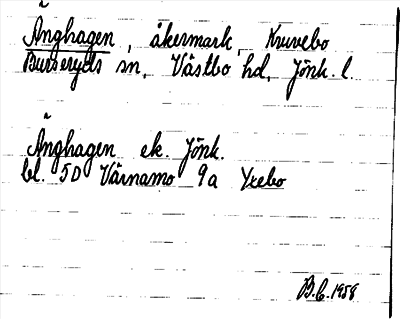 Änghagen, åkermark, Kruvebo
Burseryds sn, Västbo hd, Jönk. l.
Änghagen ek. Jönk.
bl. 5D Värnamo 9a Yxebo
B.E. 1958